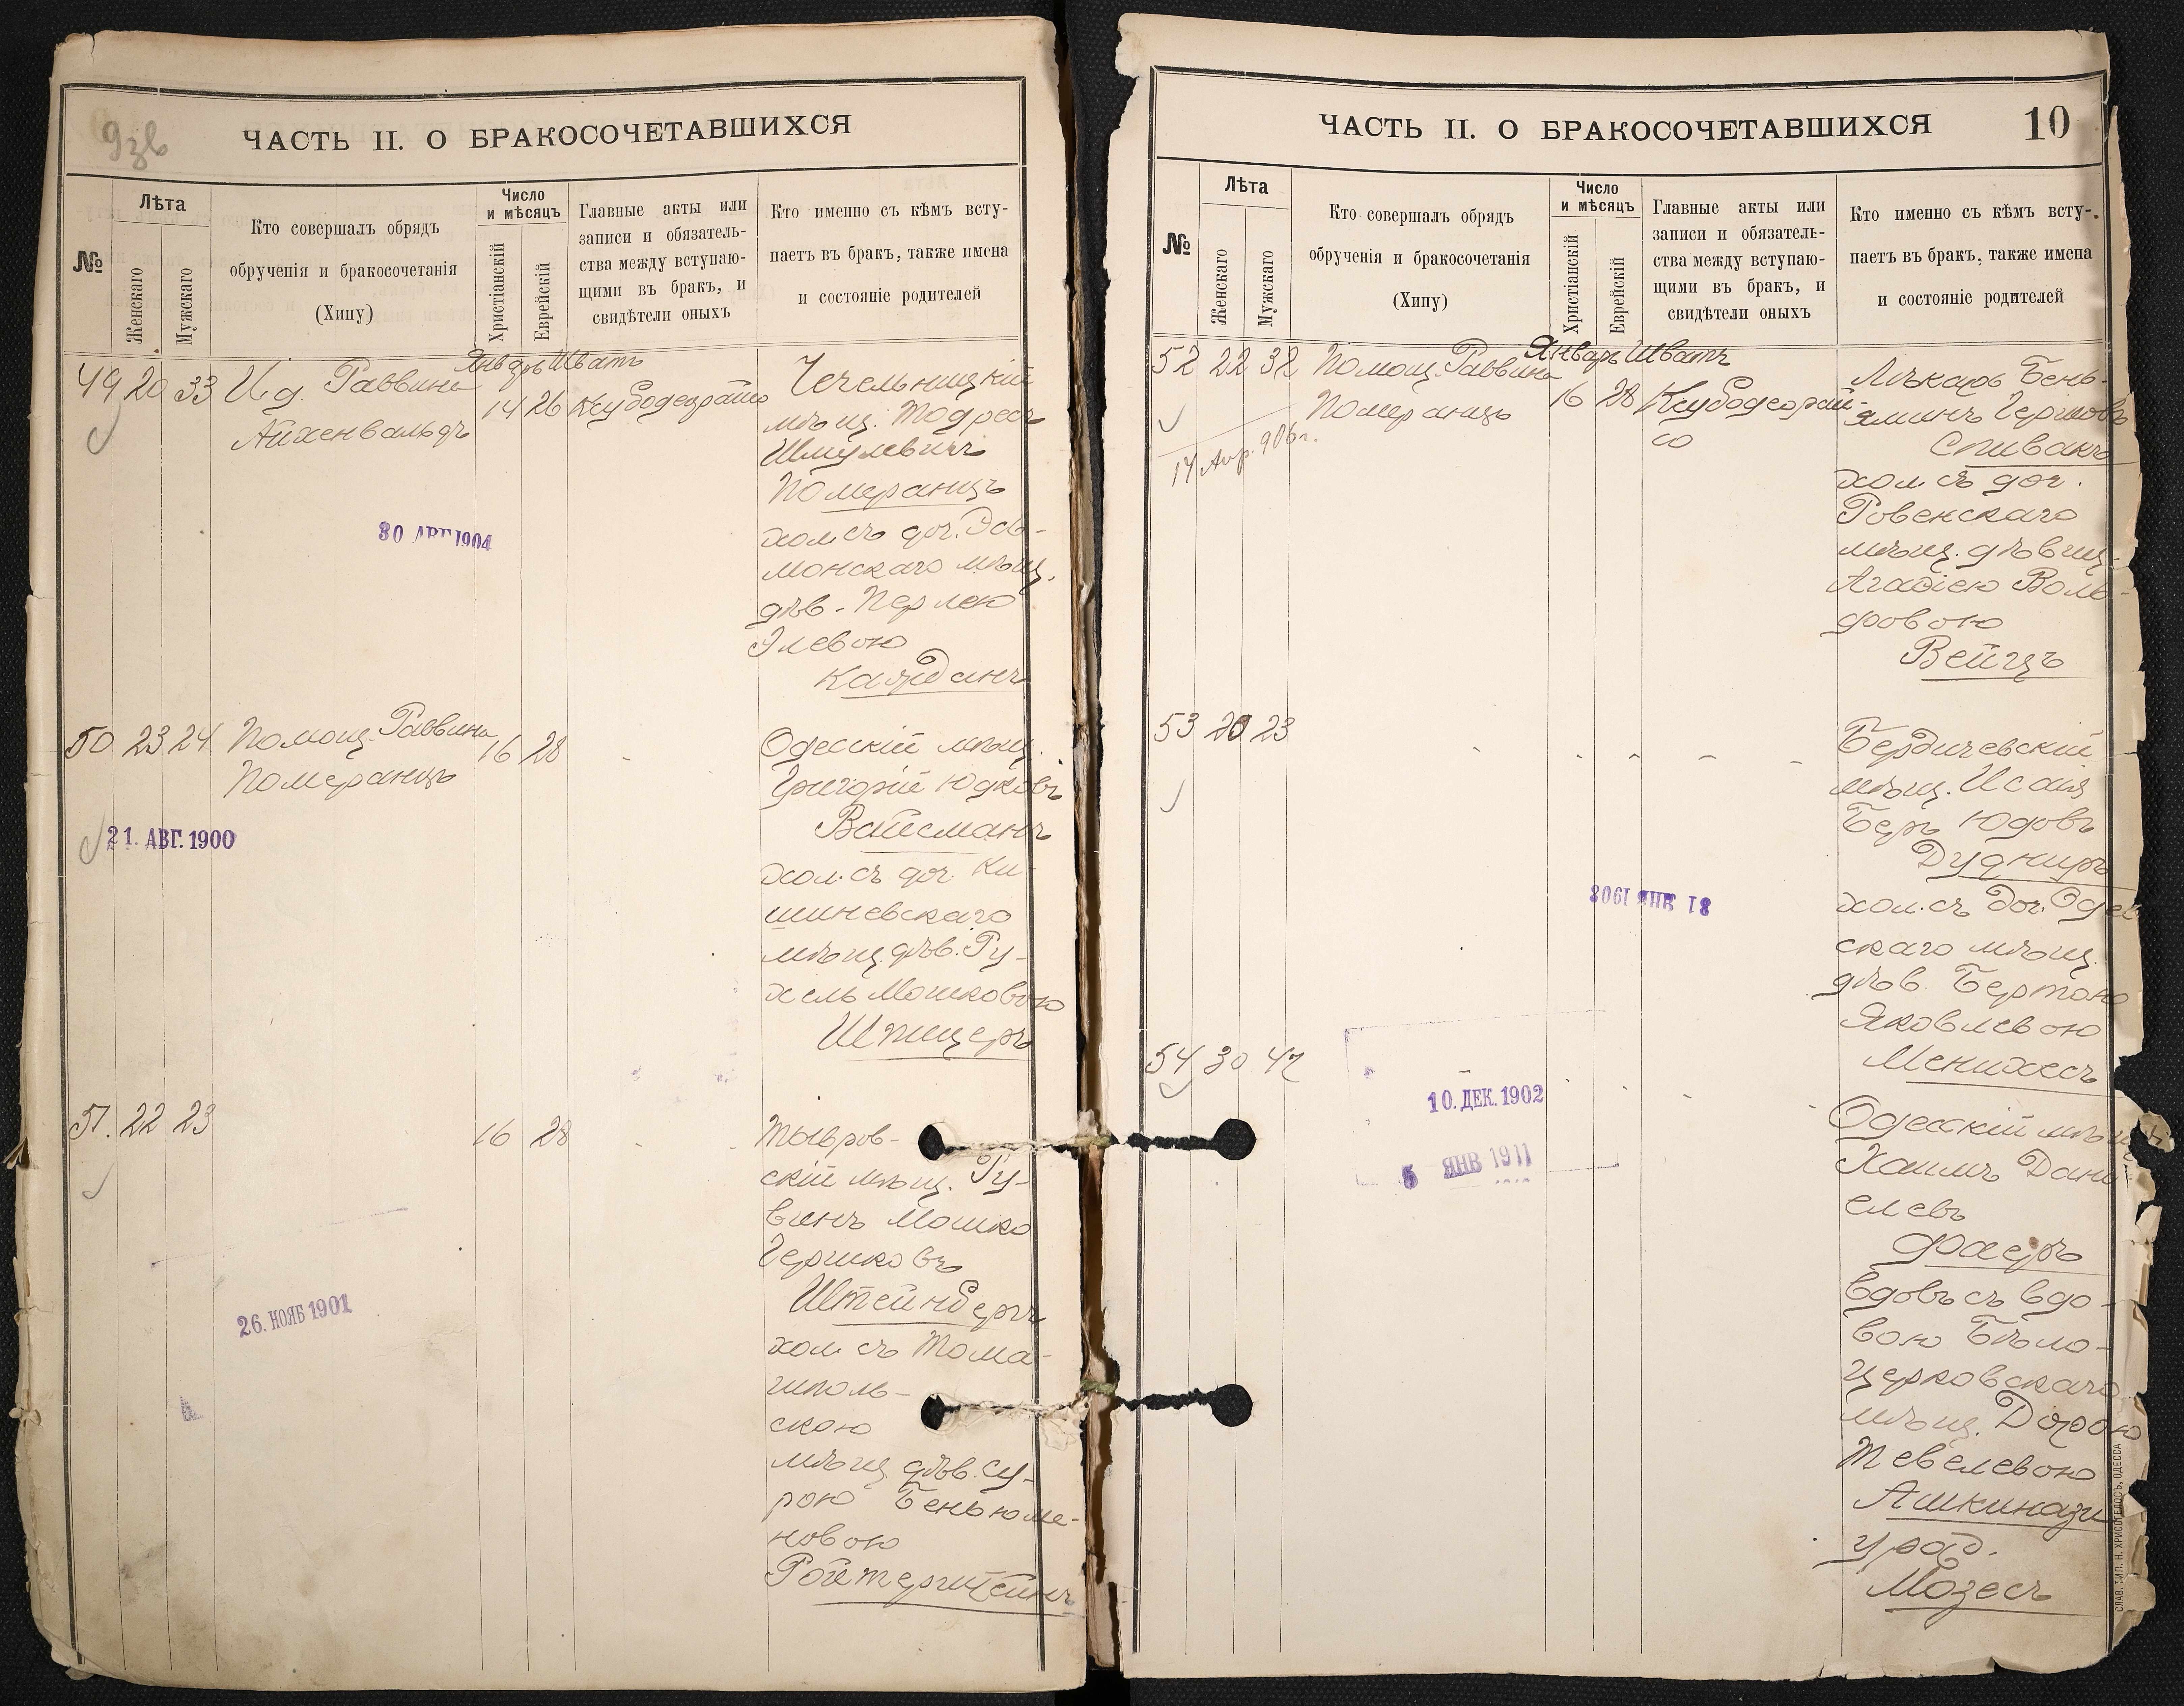 9зв
ЧАСТЬ II. О БРАКОСОЧЕТАВШИХСЯ
№
Лѣта
Женскаго
Мужскаго
Кто совершалъ обрядъ
обрученія и бракосочетанія
(Хипу)
Число
и мѣсяцъ
Христіанскій
Еврейскій
Главные акты или
записи и обязатель-
ства между вступаю-
щими въ бракъ, и
свидѣтели оныхъ
Кто именно съ кѣмъ всту-
паетъ въ брак, также имена
и состояніе родителей
Январь Шватъ
49 20 33 И.д. Раввина 14 26
Айхенвальдъ
Чечельницкій
мѣщ. Тодресъ
Шмулевичъ
Померанцъ
хол. съ доч.
монскаго мѣщ.
дѣв. Перлею
Элевою
30 АВГ 1904
50 23 24 Помощ. Раввина 16 28 -
Померанцъ
Одесскій мѣщ.
Григорій Юдковъ
Вайсманъ
хол. съ доч. Ки-
шиневскаго
мѣщ. дѣв. Ру-
хель Мошковою
Шпицеръ
21. АВГ. 1900
51. 22 23 16 28 -
Тывров-
скій мѣщ. Ру-
винъ Мошко
Гершковъ
Штейнбергъ
хол. съ Тома-
шполь-
скою
мѣщ. дѣв. Су-
рою Беньюме-
новою
Ройтерштейнъ
26. НОЯБ 1901
ЧАСТЬ II. О БРАКОСОЧЕТАВШИХСЯ
10
№
Лѣта
Женскаго
Мужскаго
Кто совершалъ обрядъ
обрученія и бракосочетанія
(Хипу)
Число
и мѣсяцъ
Христіанскій
Еврейскій
Главные акты или
записи и обязатель-
ства между вступаю-
щими въ бракъ, и
свидѣтели оныхъ
Кто именно съ кѣмъ всту-
паетъ въ бракъ, также имена
и состояніе родителей
Январь Шватъ
52 22 32 Помощ. Раввина 16 28
Померанцъ
14 Апр. 906 г.
Лѣкарь Бень-
яминъ Гершковъ
Спивакъ
хол. съ доч.
Ровенскаго
мѣщ. дѣвиц.
Агафіею Воль-
фовою
Вейцъ
53 20 23 - - - -
Бердичевскій
мѣщ. Исаія
Беръ Юдовъ
Дудниръ
хол. съ доч. Одес
скаго мѣщ.
дѣв. Бертою
Яковлевою
Менихесъ
31 ЯНВ 1903
54 30 47 - -
Одесскій мѣщ.
Хаимъ Дани
елевъ
Фаеръ
вдовъ съ вдо-
вою Бѣло-
церковскаго
мѣщ. Дорою
Тевелевою
Ашкинази
урод.
Мозесъ
10. ДЕК. 1902
5 ЯНВ 1911
СЛАВ. ТИП. Н. ХРИСОГЕЛОСЪ, ОДЕССА